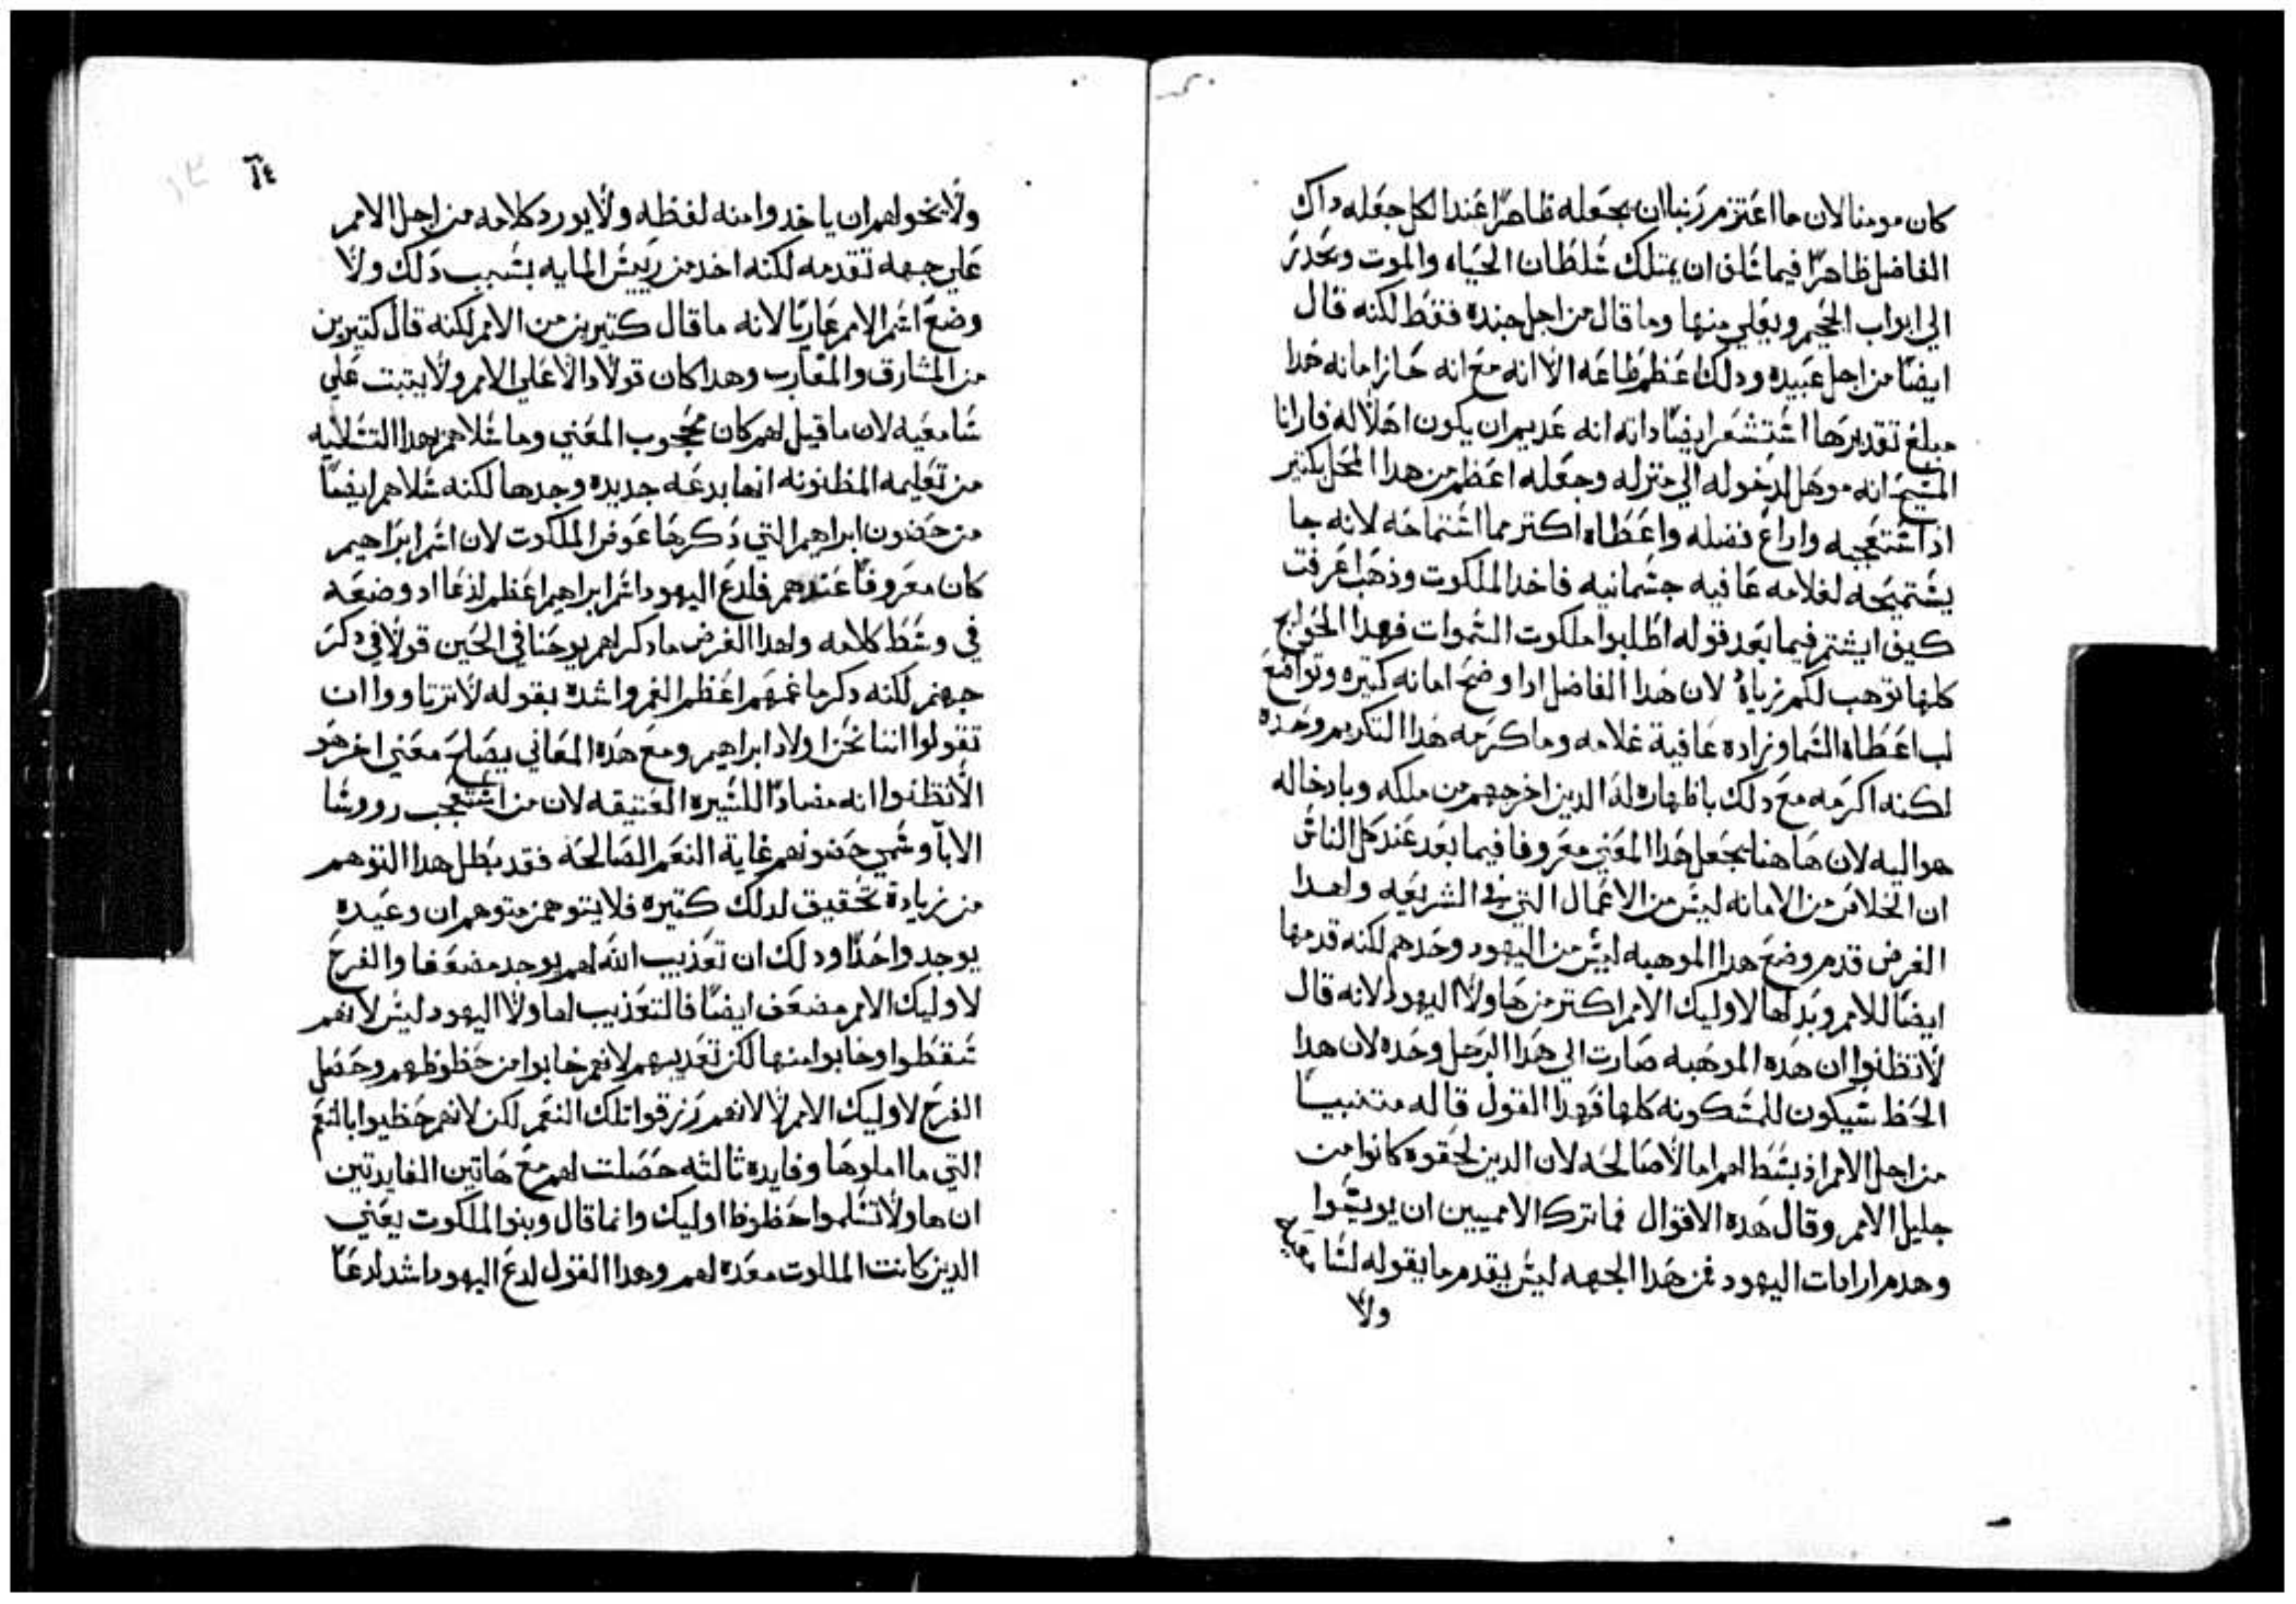 كان مومنا لان ما اعتزم ربنا ان يجعله ظاهرًا عند الكل جعله داك
الفاضل ظاهرًا فيما شلف ان يمتلك شلطان الحياه والموت ويحدر
الي ابواب الجحيم ويعلي منها وما قال من اجل جنده فقط لكنه قال
ايضًا من اجل عبيده ودلك اعظم طاعه الا انه مع انه حاز امانه هدا
مبلغ تقديرها اشتشعر ايضًا داته انه عديم ان يكون اهلًا له فارانا
المشيح انه موهل لدخوله الي منزله وجعله اعظم من هدا المحل بكتير
اد اشتعجبه واداع فضله واعطاه اكتر مما اشتماحه لانه جا
يشتميحه لغلامه عافيه جشمانيه فاخد الملكوت وذهب اعرفت
كيف ايشتم فيما بعد قوله اطلبوا ملكوت الشموات فهدا الحوايج
كلها توهب لكم زياده لان هدا الفاضل ادا وضح امانه كتيره وتواضع
لب اعطاه الشما وزاده عافية غلامه وما كرمه هدا التكريم وحده
لكنه اكرمه مع دلك باظهاره له الدين اخرجهم من ملكه وبادخاله
هو اليه لان هاهنا يجعل هدا المعني معروفا فيما بعد عند كل الناش
ان الخلاص من الامانه ليش من الاعمال التي في الشريعه ولهدا
الغرض قدم وضع هدا الموهبه ليش من اليهود وحدهم لكنه قدمها
ايضًا للامم وبدلها لاوليك الامم اكتر من هاولا اليهود لانه قال
لا تظنوا ان هده الموهبه صارت الي هدا الرجل وحده لان هدا
الحظ شيكون للمشكونه كلها فهدا القول قاله متنبيا
من اجل الامم اذ بشط لهم امالا صالحه لان الدين لحقوه كانوا من
جليل الامم وقال هده الاقوال فما ترك الامميين ان يويشوا
وهدم ارادات اليهود فمن هدا الجهه ليش يقدم ما يقوله لشامعيه
ولا
١٤
ولا يخولهم ان ياخدوا منه لفظه ولا يورد كلامه من اجل الامم
علي جهه تقدمه لكنه اخد من رييش المايه بشبب دلك ولا
وضع اشم الامم عاريًا لانه ما قال كتيرين من الامم لكنه قال كتيرين
من المشارق والمغارب وهدا كان قولًا دالًا علي الامم ولا يتبت علي
شامعيه لان ما قيل لهم كان محجوب المعني وما شلاهم بهدا التشليه
من تعليمه المظنونه انها بدعه جديده وجدها لكنه شلاهم ايضًا
من حضون ابراهيم التي دكرها عوض الملكوت لان اشم ابراهيم
كان معروفًا عندهم فلدغ اليهود اشم ابراهيم اعظم لذعًا اد وضعه
في وشط كلامه ولهدا الغرض ما دكر لهم يوحنا في الحين قولًا في دكر
جهنم لكنه دكر ما غمهم اعظم الغم واشده بقوله لا ترتاووا ان
تقولوا اننا نحن اولاد ابراهيم ومع هده المعاني يصلح معني اخر هو
الا تظنوا انه مضادًا للشيره العتيقه لان من اشتعجب رووشا
الابا وشمي حضونهم غاية النعم الصالحه فقد بطل هدا التوهم
من زيادة تحقيق لدلك كتيره فلا يتوهمن متوهم ان وعيده
يوجد واحدًا ودلك ان تعذيب الله لهم يوجد مضعفا والفرح
لاوليك الامم مضعف ايضًا فالتعذيب لهاولا اليهود ليش لانهم
شقطوا وخابوا منها لكن تعديبهم لانهم خابوا من حظوظهم وحصل
الفرح لاوليك الامم لا لانهم رزقوا تلك النعم لكن لانهم حظيوا بالنعم
التي ما املوها وفايده ثالثه حصلت لهم مع هاتين الفايدتين
ان هاولا تشلموا حظوظ اوليك وانما قال وبنوا الملكوت يعني
الدين كانت الملكوت معده لهم وهدا القول لدغ اليهود اشد لدعًا